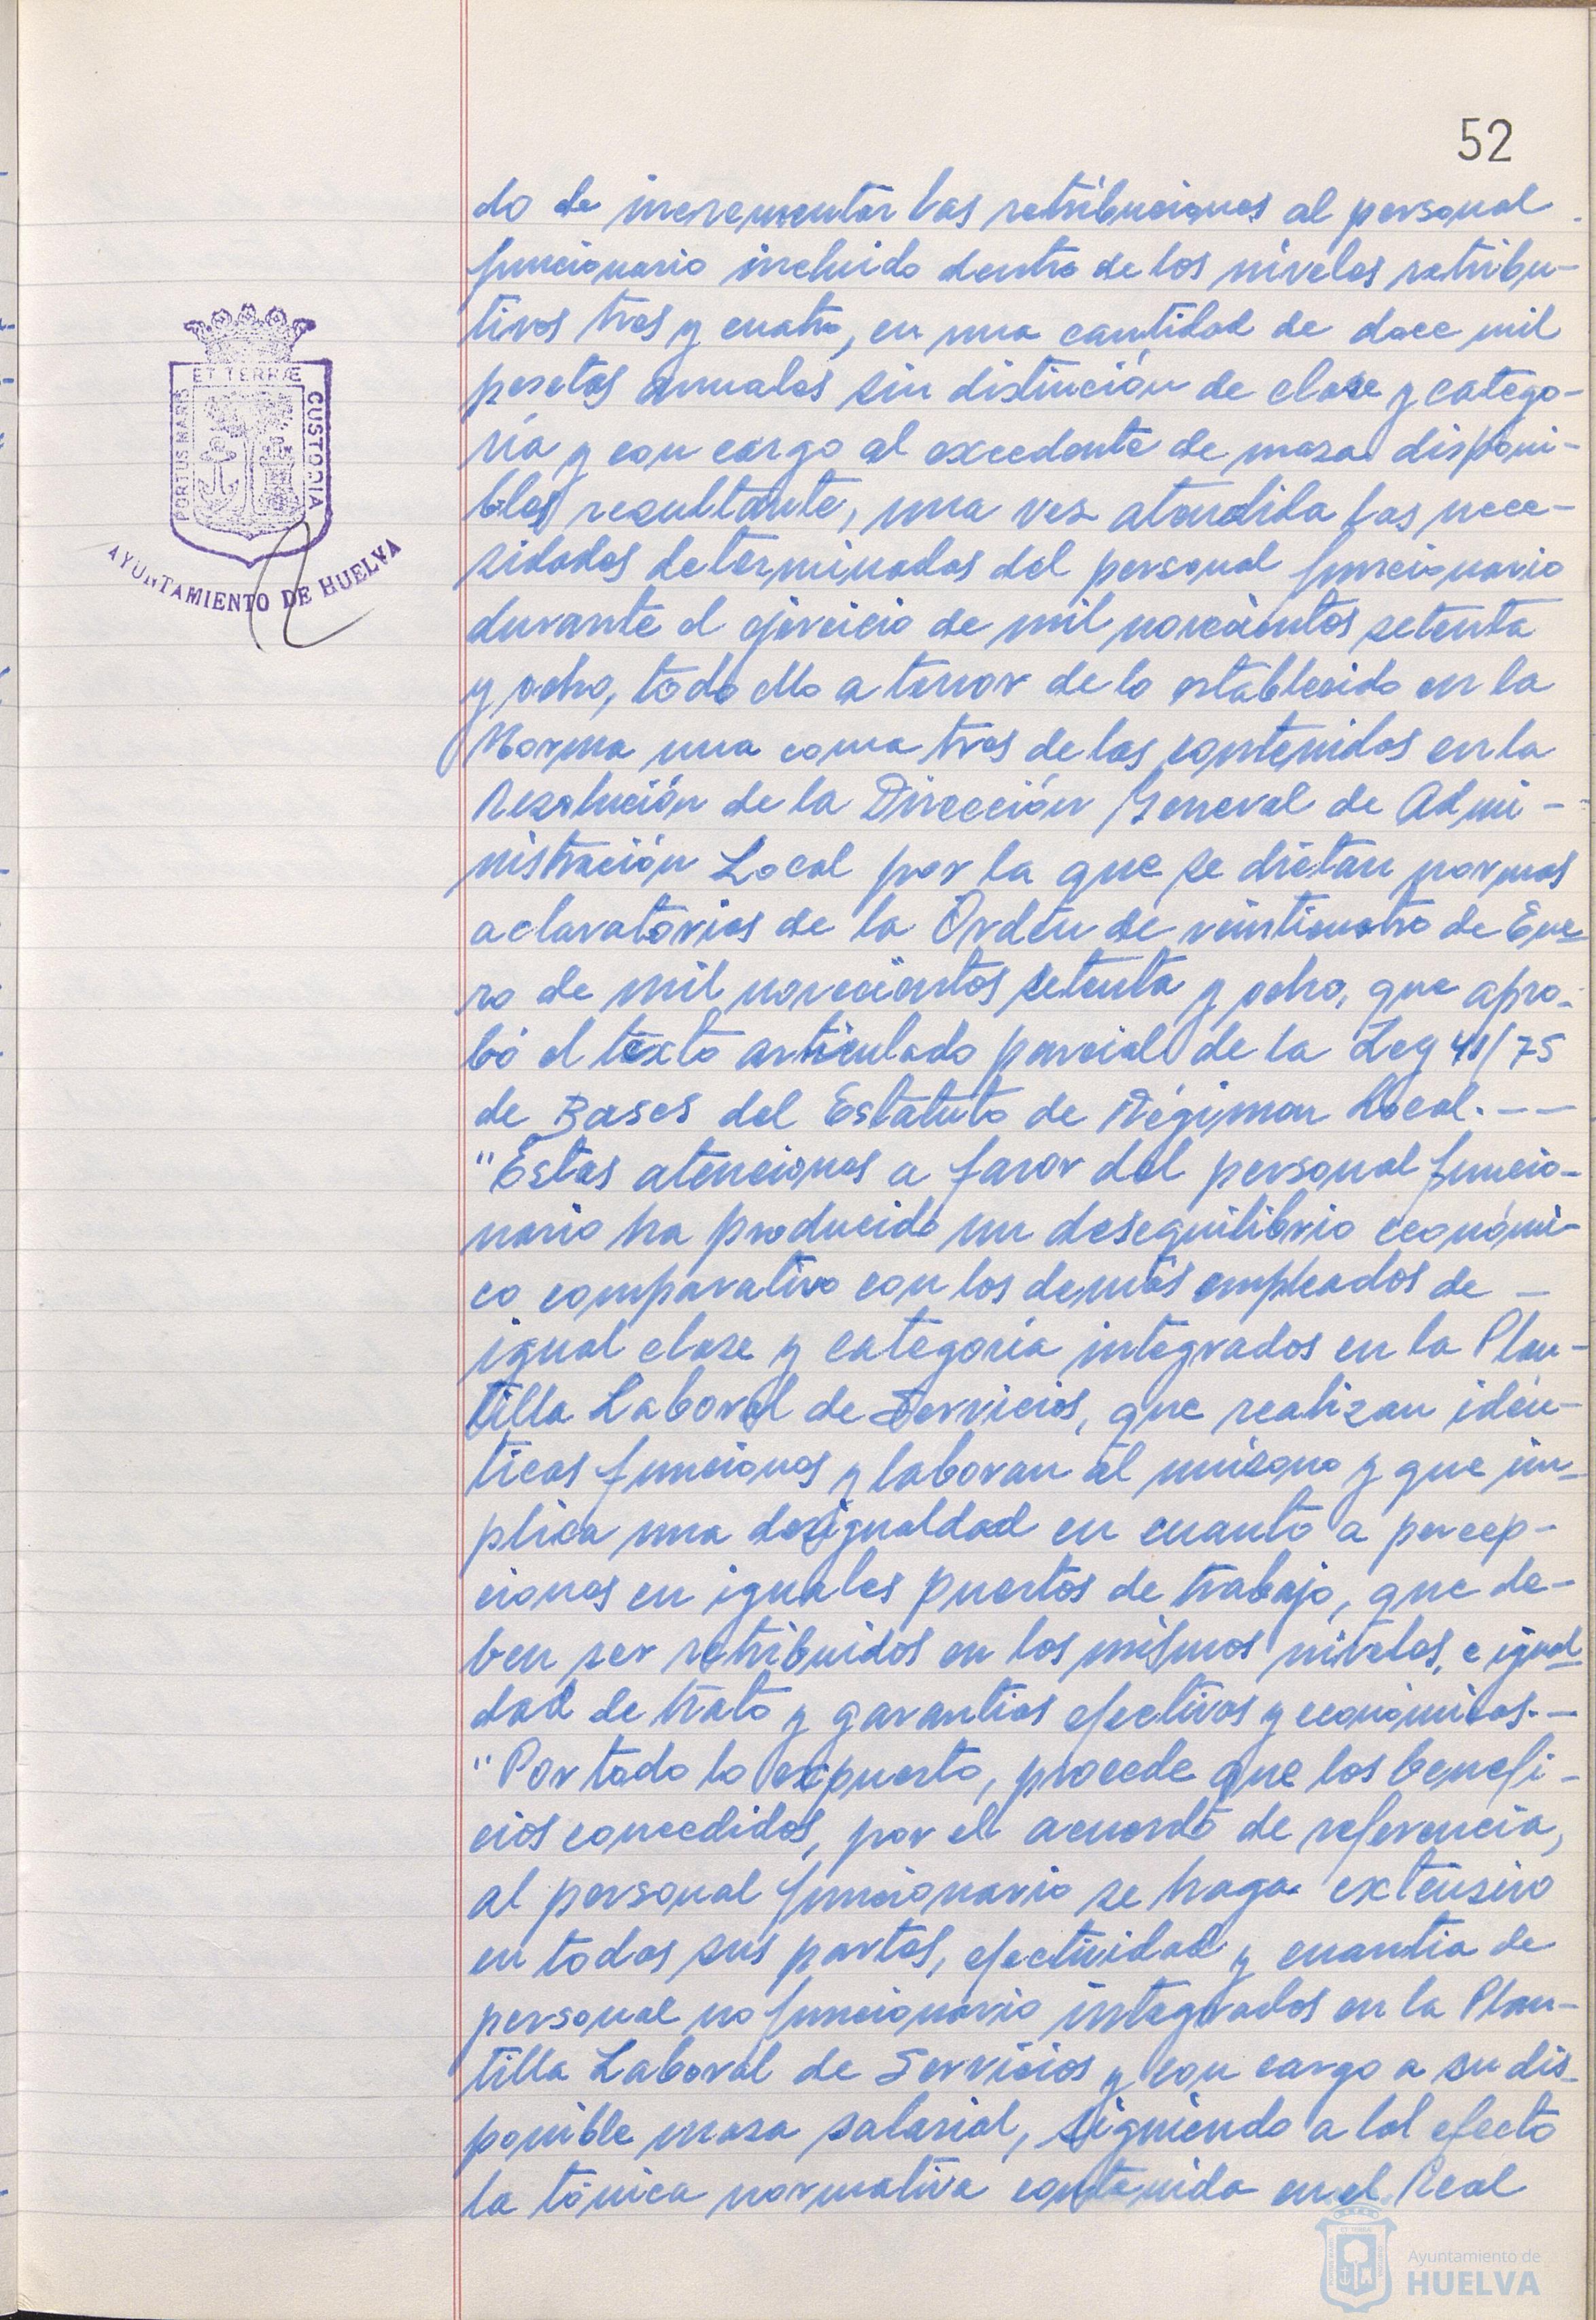 52
do de incrementar las retribuciones al personal
funcionario incluido dentro de los niveles retribu-
tivos tres y cuatro, en una cantidad de doce mil
pesetas anuales sin distinción de clase y catego-
ría y con cargo al excedente de masa disponi-
bles resultante, una vez atendida las nece-
sidades determinadas del personal funcionario
durante el ejercicio de mil novecientos setenta
y ocho, todo ello a tenor de lo establecido en la
Norma una coma tres de las contenidas en la
Resolución de la Dirección General de Admi-
nistración Local por la que se dictan normas
aclaratorias de la Orden de veinticuatro de Ene
ro de mil novecientos setenta y ocho, que apro-
bó el texto articulado parcial de la Ley 41/75
de Bases del Estatuto de Régimen Local.--
"Estas atenciones a favor del personal funcio-
nario ha producido un desequilibrio económi-
co comparativo con los demás empleados de -
igual clase y categoría integrados en la Plan-
tilla Laboral de Servicios, que realizan idén-
ticas funciones y laboran al unísono y que im-
plica una desigualdad en cuanto a percep-
ciones en iguales puestos de trabajo, que de-
ben ser retribuidos en los mismos niveles, e igual
dad de trato y garantías efectivas y económicas.-
"Por todo lo expuesto, procede que los benefi-
cios concedidos, por el acuerdo de referencia,
al personal funcionario se haga extensivo
en todas sus partes, efectividad y cuantía de
personal no funcionario integrados en la Plan-
tilla Laboral de Servicios y con cargo a su dis-
ponible masa salarial, siguiendo a tal efecto
la tónica normativa contenida en el Real
ET TERRÆ
PORTUS MARIS
CUSTODIA
AYUNTAMIENTO DE HUELVA
Ayuntamiento de
HUELVA